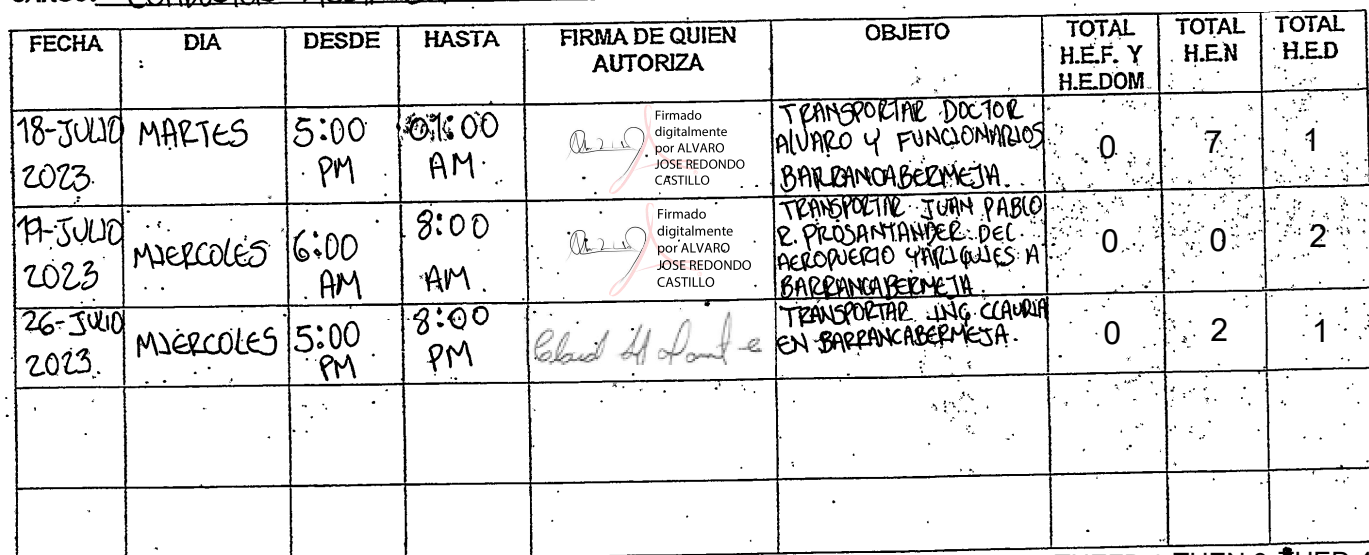 FECHA DIA DESDE HASTA FIRMA DE QUIEN AUTORIZA OBJETO TOTAL H.E.F. Y H.E.DOM TOTAL H.E.N TOTAL H.E.D
18-JULIO 2023.
MARTES
5:00 PM
01:00 AM.
Firmado
digitalmente
por ALVARO
JOSE REDONDO
CASTILLO
TRANSPORTAR DOCTOR
ALVARO Y FUNCIONARIOS
BARRANCABERMEJA.
0
7
1
19-JULIO 2023
MIERCOLES
6:00 AM
8:00 AM.
Firmado
digitalmente
por ALVARO
JOSE REDONDO
CASTILLO
TRANSPORTAR JUAN PABLO
R. PROSANTANDER DEL
AEROPUERTO YARIGUIES A
BARRANCABERMEJA.
0
0
2
26-JULIO 2023.
MIERCOLES
5:00 PM
8:00 PM
TRANSPORTAR ING CLAUDIA
EN BARRANCABERMEJA.
0
2
1